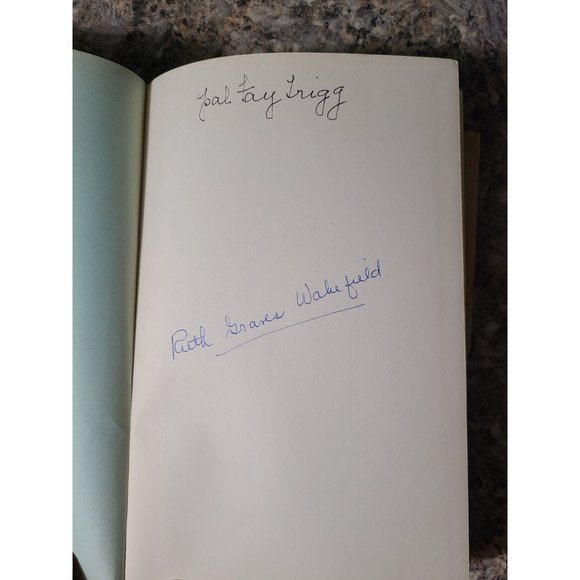 Fay Trigg
Ruth Graves Wakefield